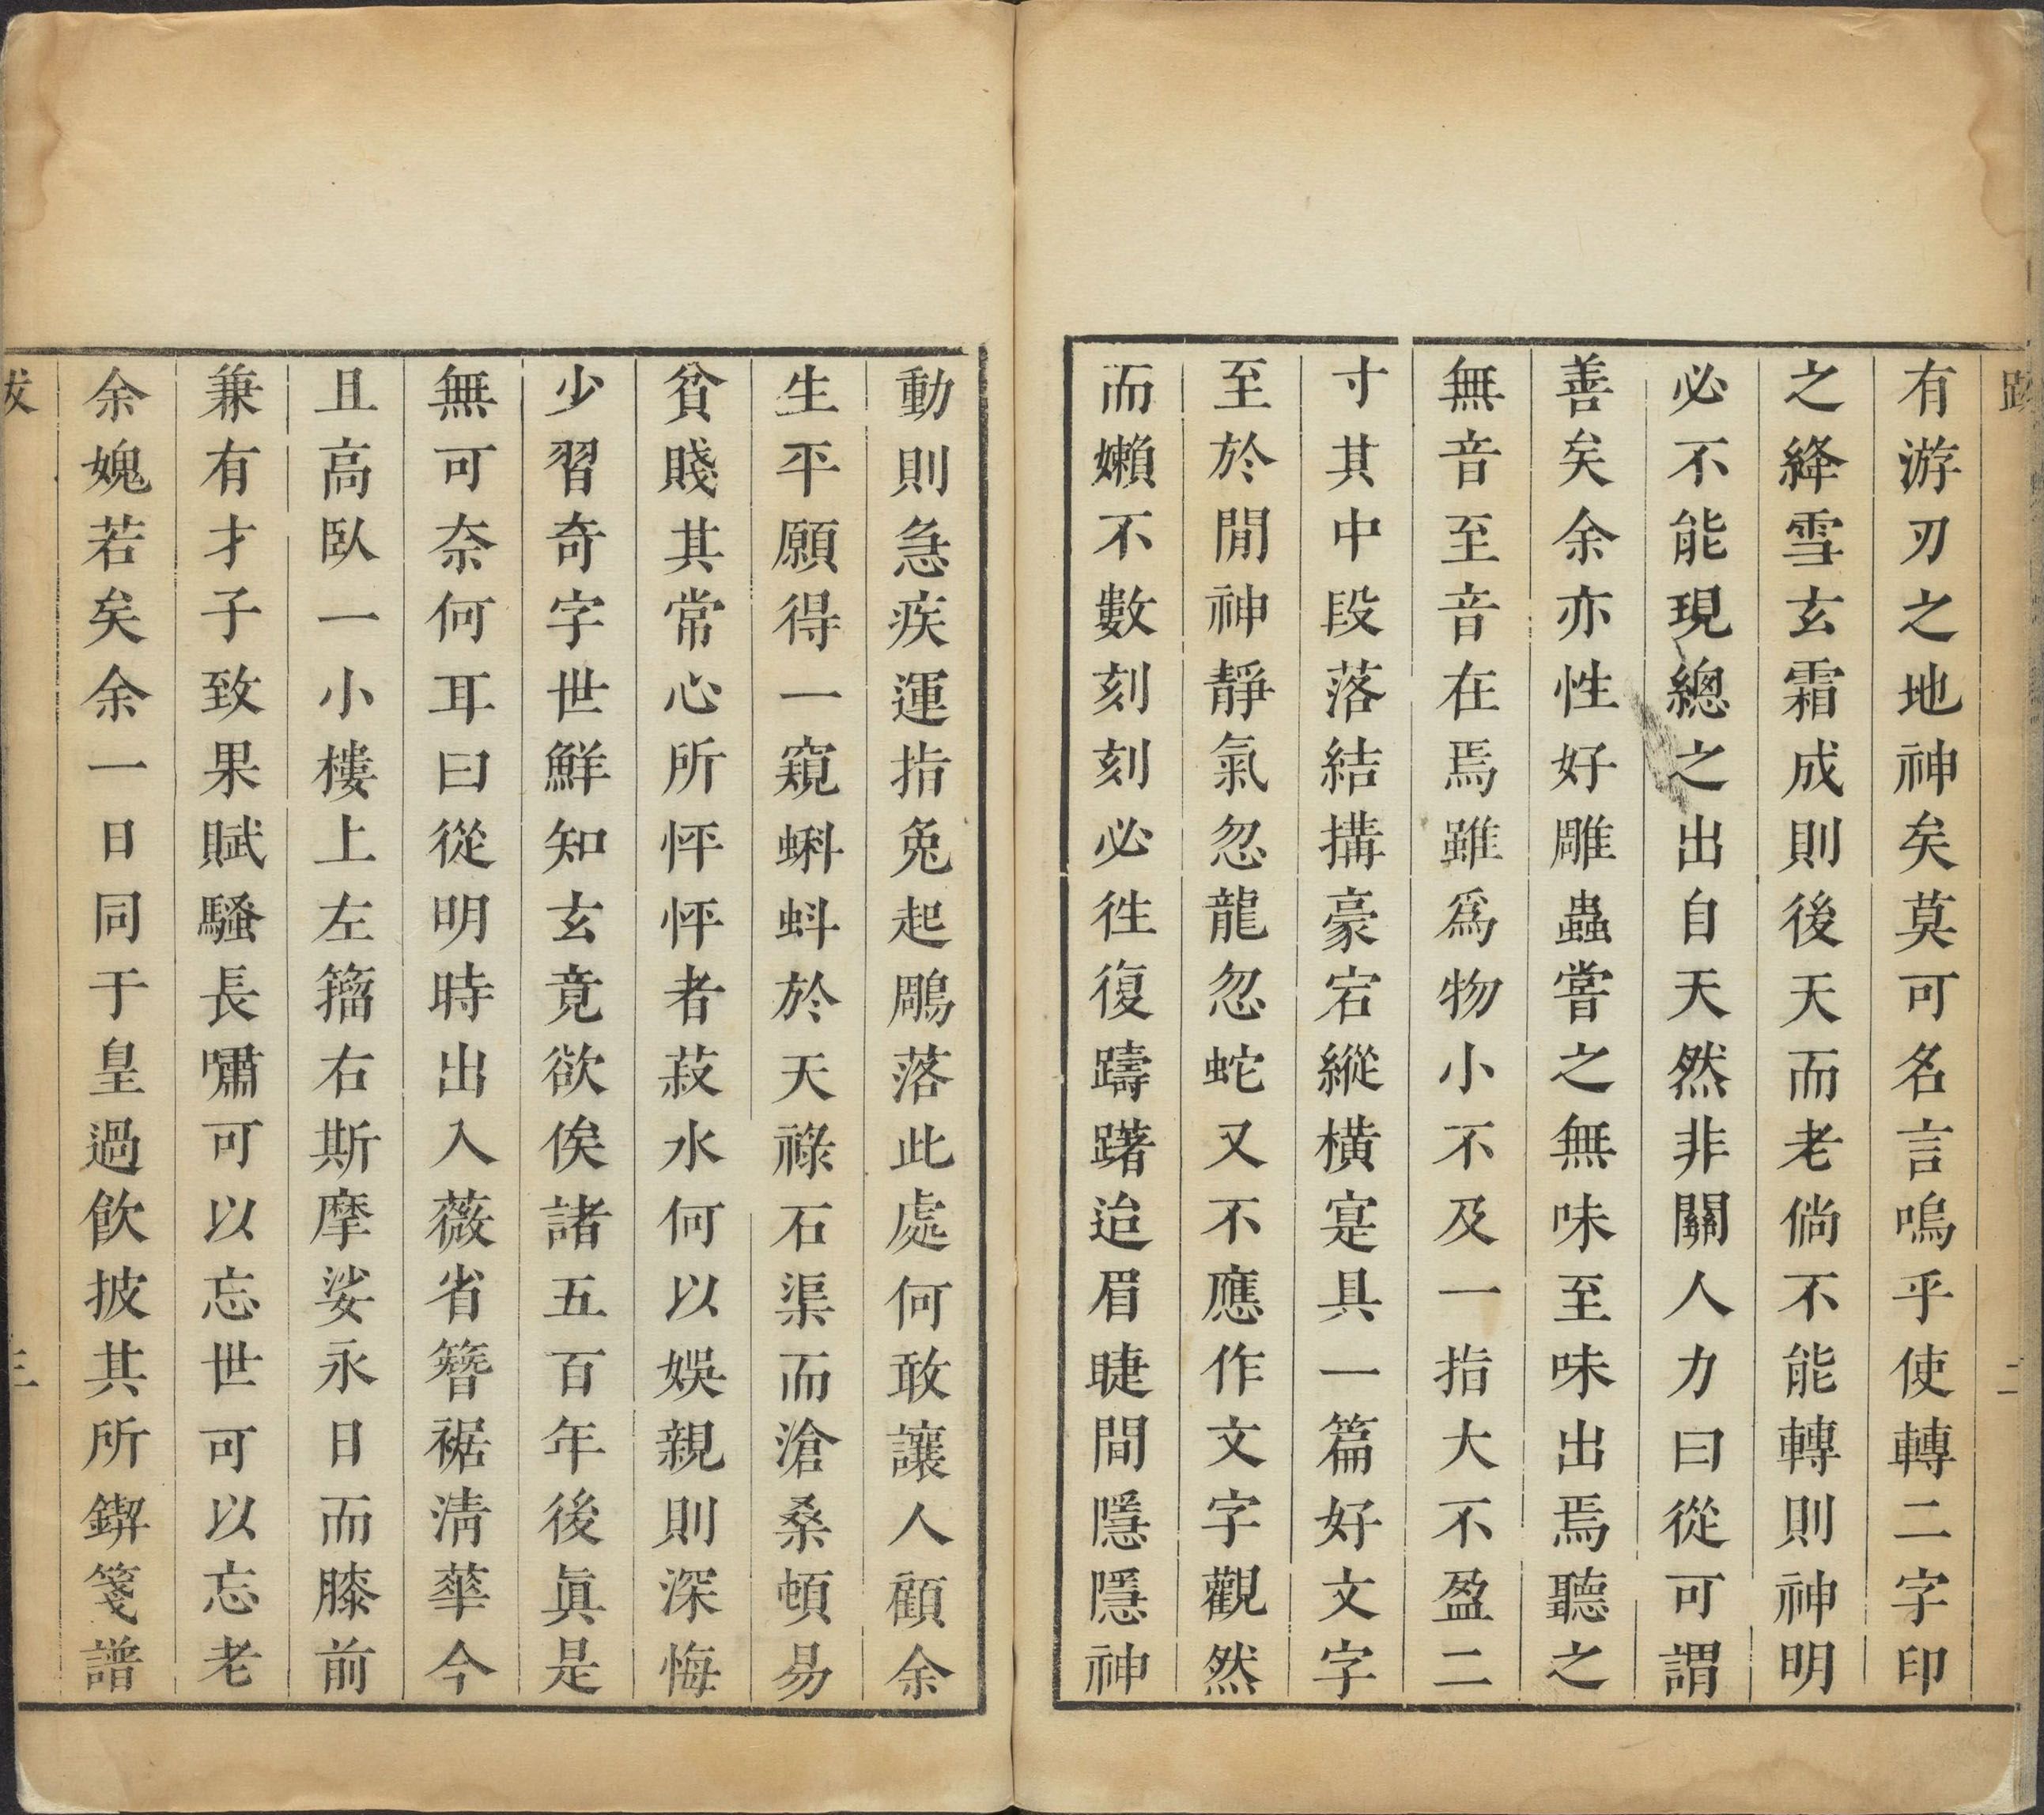 跋
二
有游刃之地神矣莫可名言嗚乎使轉二字印
之絳雪玄霜成則後天而老倘不能轉則神明
必不能現總之出自天然非關人力曰從可謂
善矣余亦性好雕蟲嘗之無味至味出焉聽之
無音至音在焉雖爲物小不及一指大不盈二
寸其中段落結搆豪宕縱橫寔具一篇好文字
至於閒神靜氣忽龍忽蛇又不應作文字觀然
而嬾不數刻刻必徃復躊躇迨眉睫間隱隱神
動則急疾運指兔起鶻落此處何敢讓人顧余
生平願得一窺蝌蚪於天祿石渠而滄桑頓易
貧賤其常心所怦怦者菽水何以娛親則深悔
少習奇字世鮮知玄竟欲俟諸五百年後眞是
無可奈何耳曰從明時出入薇省簪裾淸華今
且高臥一小樓上左籀右斯摩娑永日而膝前
兼有才子致果賦騷長嘯可以忘世可以忘老
余媿若矣余一日同于皇過飮披其所鐭箋譜
跋
三